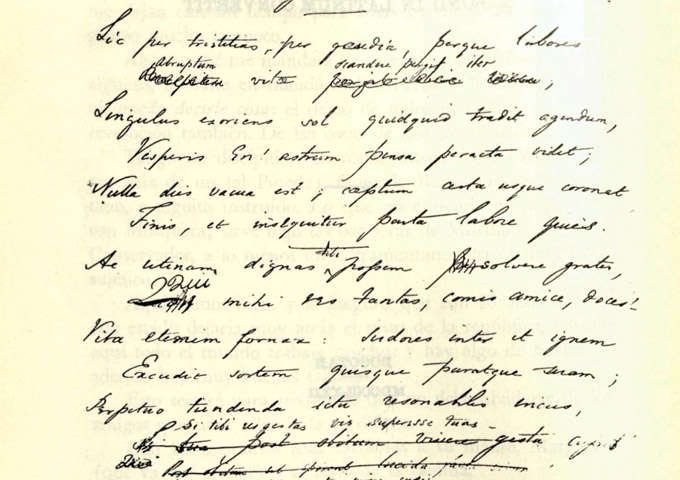 Sic per tristitias, per gaudia, perque labores
Abruptum scandere pergit iter
vitae
Singulus exoriens sol quidquid tradit agendum,
Vesperis en! astrum pensa peracta videt;
Nulla dies vacua est; captum certa usque coronat
Finis, et insequitur parta labore quies.
Ac utinam dignas tibi possem solvere grates,
Qui mihi res tantas, comis amice, doces!
Vita etenim fornax: sudores inter et ignem
Excudit sortem quisque paratque suam;
Perpetuo tundenda ictu resonabilis incus,
Si tibi res gestas vis superesse tuas
post obitum vivere gesta cupis
Post obitum